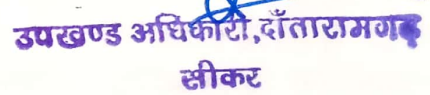 उपखण्ड अधिकारी,दाँतारामगढ़
सीकर